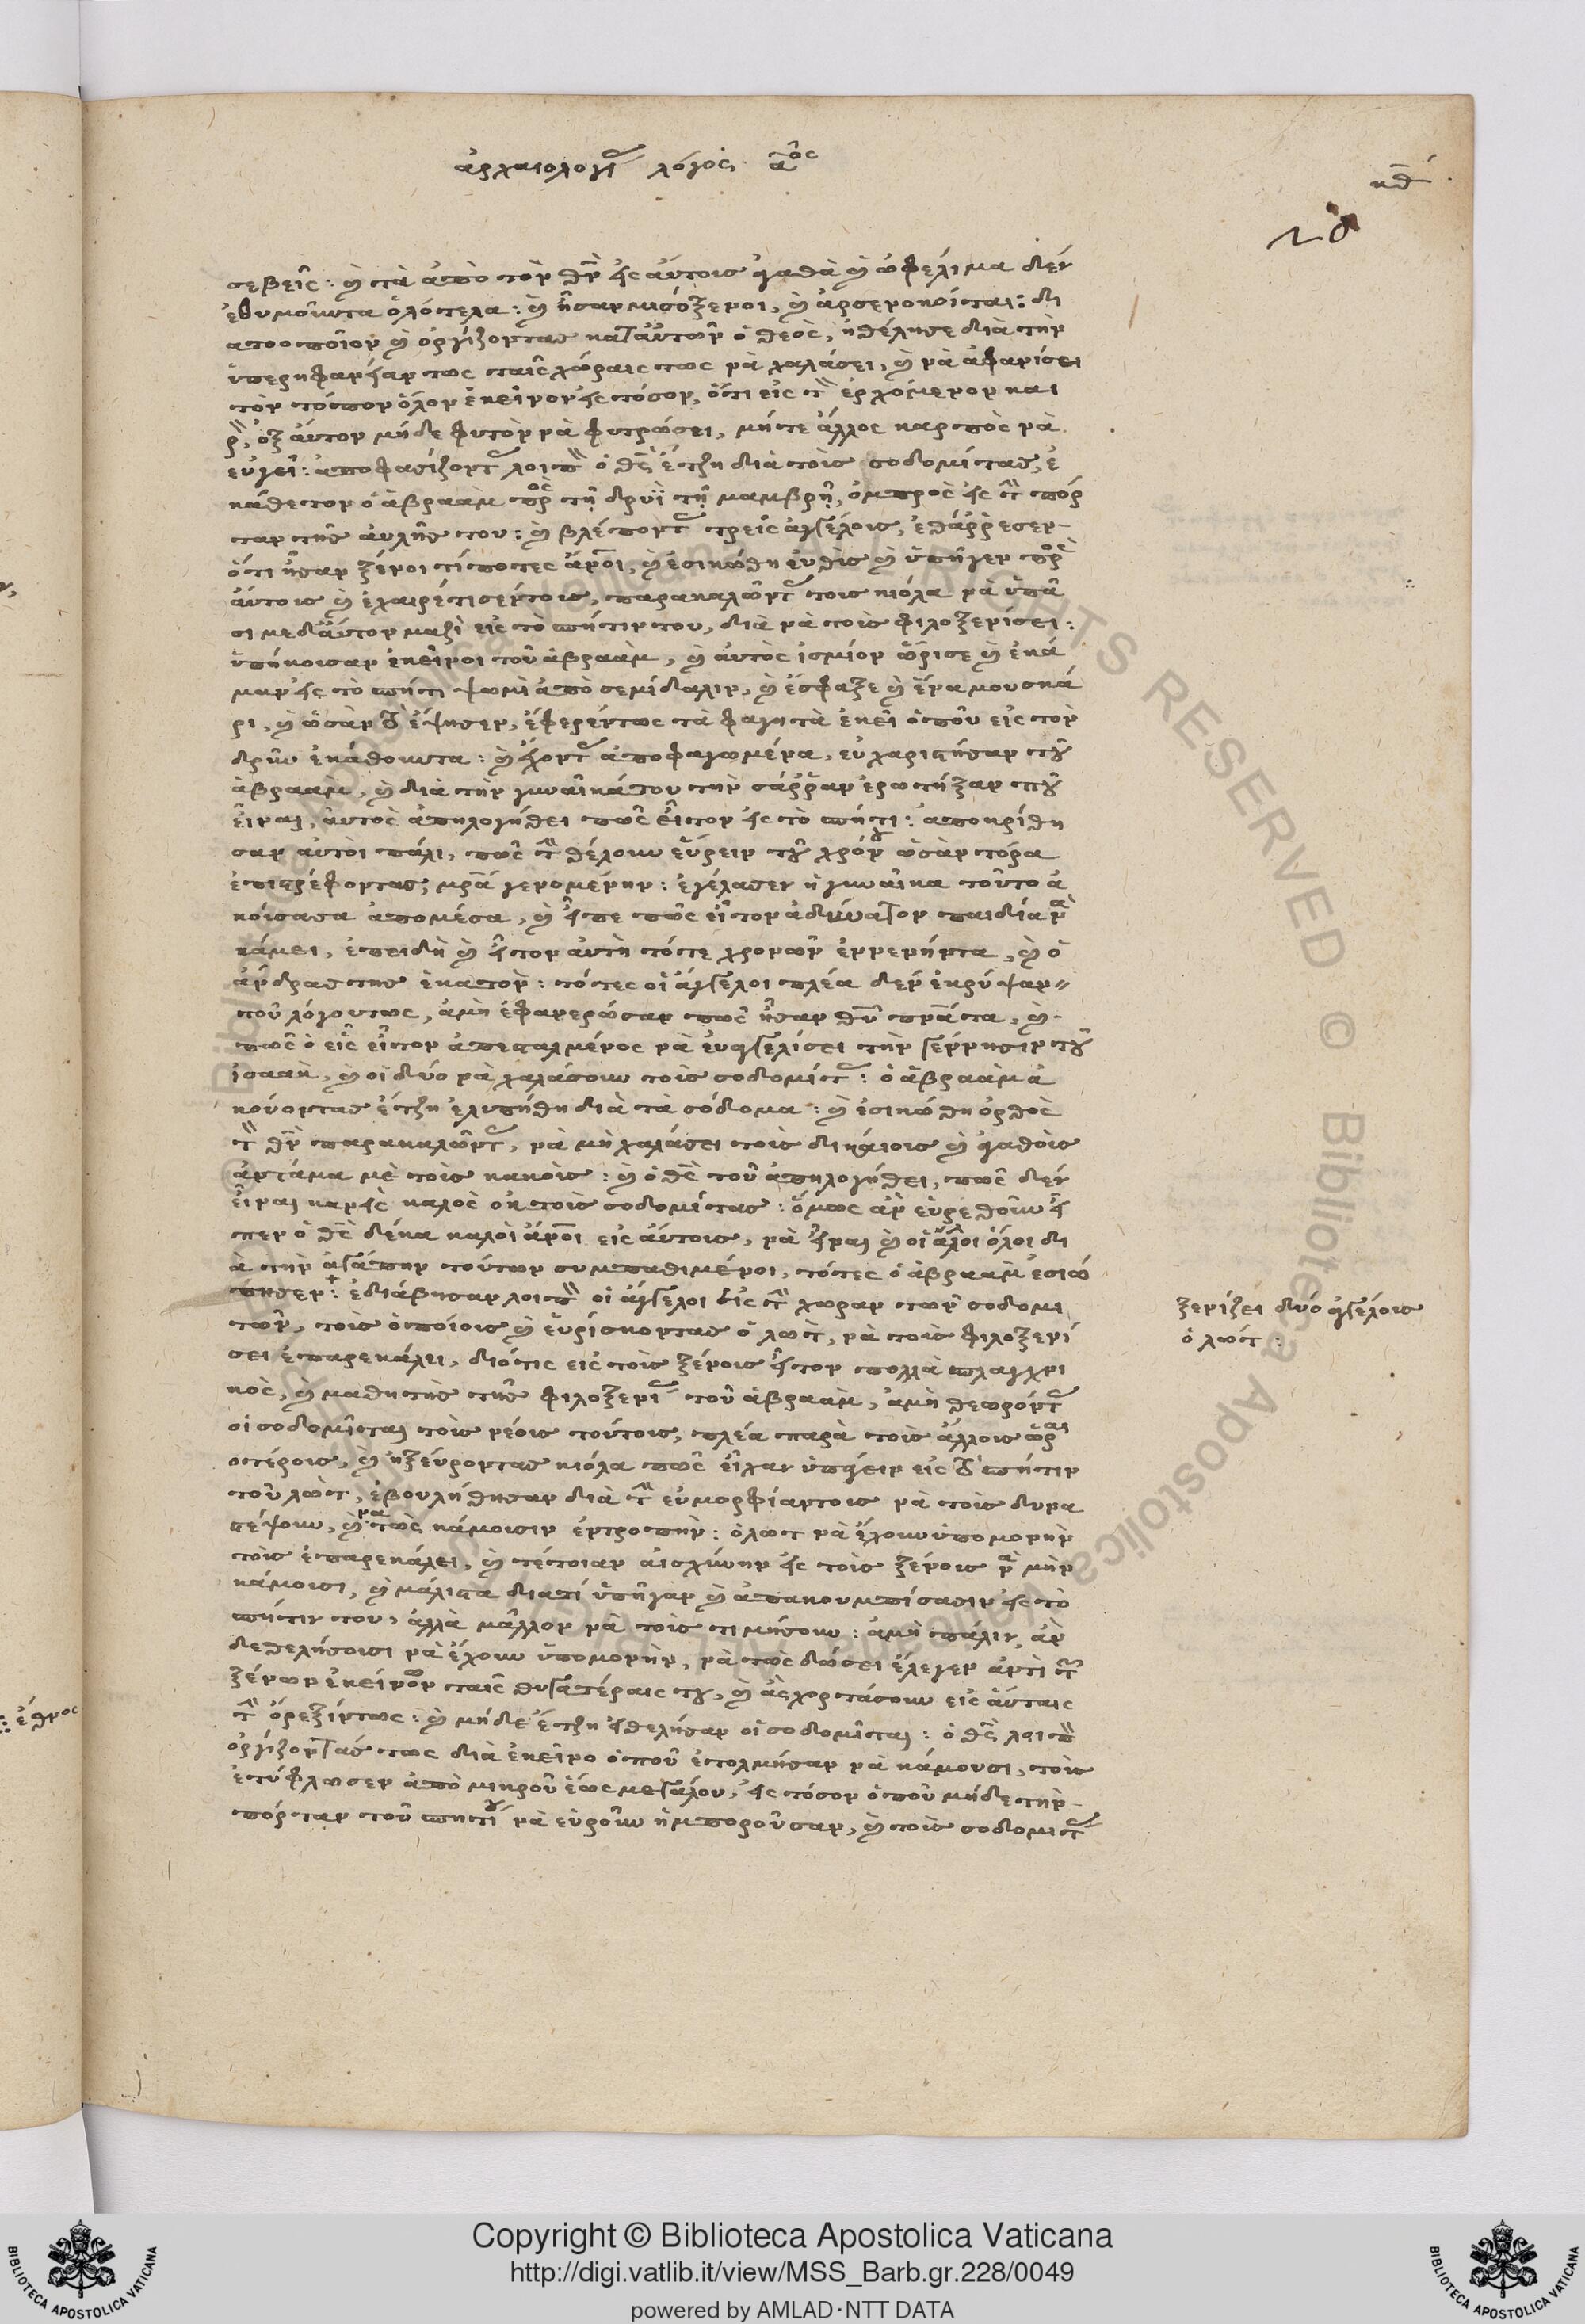 ἀρχαιολογί λόγος αος
κδ
σεβεῖς : καὶ τὰ ἀπὸ τὸν θν εἰς αὐτοὺς ἀγαθὰ καὶ ὠφέλιμα δὲν
ἐθυμοῦντα ὁλότελα : καὶ ἦσαν μισόξενοι, καὶ ἀρσενοκοίται : δι
αποοποῖον καὶ ὀργίζοντας κατ' αὐτῶν ὁ θεὸς, ἠθέλησε διὰ τὴν
ὑπερηφανίαν τως ταῖς χώραις τως νὰ χαλάσει, καὶ νὰ ἀφανίσει
τὸν τόπον ὅλον ἐκεῖνον εἰς τόσον, ὅτι εἰς τὸ ἐρχόμενον καὶ
αὐτον μήδε φυτὸν νὰ φυτρώσει, μήτε ἄλλος καρπὸς νὰ
εὐγεῖ : ἀποφασίζοντ λοιπὸ ὁ θς ἔτζη διὰ τοὺς σοδομίτας, ἐ
κάθετον ὁ ἀβραὰμ πρὸς τῇ δρυῒ τῇ μαμβρῇ, ὀμπρὸς εἰς τὴ πόρ
ταν τῆς αὐλῆς του : καὶ βλέποντ τρεῖς ἀγγέλους, ἐθάῤῥεσεν
ὅτι ἦσαν ξένοι τίποτες ἄνοι, καὶ ἐσικώθη εὐθὺς καὶ ὑπῆγεν πρὸς
αὐτοὺς καὶ ἐχαιρέτισέν τους, παρακαλῶντ τους κιόλα νὰ ὑπᾶ
σι μεδαὐτον μαζὶ εἰς τὸ σπήτιν του, διὰ νὰ τοὺς φιλοξενίσει :
ὑπήκουσαν ἐκεῖνοι τοῦ ἀβραὰμ, καὶ αὐτὸς ἰσμίον ὥρισε καὶ ἐκά
μαν εἰς τὸ σπήτι ψωμὶ ἀπὸ σεμίδαλιν, καὶ ἔσφαξε καὶ ἕνα μουσκά
ρι, καὶ ὡσὰν τὸ ἔψησεν, ἔφερέν τως τὰ φαγητὰ ἐκεῖ ὁποῦ εἰς τὸν
δρῦν ἐκάθουντα : καὶ ἔχοντ ἀποφαγωμένα, εὐχαριστήσαν τοῦ
ἀβραὰμ, καὶ διὰ τὴν γυναῖκά του τὴν σάῤῥαν ἐρωτήξαν ποῦ
εἶναι, αὐτὸς ἀπηλογήθει πῶς εἶτον εἰς τὸ σπήτι : ἀποκρίθη
σαν αὐτοὶ πάλι, πῶς τὴ θέλουν εὕρειν τοῦ χρόνου ὡσὰν τόρα
ἐπιστρέφοντας, μρα γενομένην : ἐγέλασεν ἡ γυναῖκα τοῦτο ἀ
κούσασα ἀπομέσα, καὶ εἶπε πῶς εἶτον ἀδύνατον παιδία νὰ
κάμει, ἐπειδὴ καὶ εἶτον αὐτὴ τότε χρονῶν ἐννενήντα, καὶ ὁ
ἄνδρας της ἑκατὸν : τότες οἱ ἄγγελοι πλέα δὲν ἐκρύψαν
τοῦ λόγου τως, ἀμὴ ἐφανερώσαν πῶς ἦσαν θῦ πράτα, καὶ
πῶς ὁ εἷς εἶτον ἀπεσταλμένος νὰ εὐαγγελίσει τὴν γέννησιν τοῦ
ἰσαὰκ, καὶ οἱ δύο νὰ χαλάσουν τοὺς σοδομίτ : ὁ ἀβραὰμ ἀ
κούοντας ἔτζη ἐλυπήθη διὰ τὰ σόδομα : καὶ ἐσικώθη ὀρθὸς
τὸ θν παρακαλῶντ, νὰ μὴ χαλάσει τοὺς δικαίους καὶ ἀγαθοὺς
ἀντάμα μὲ τοὺς κακοὺς : καὶ ὁ θς τοῦ ἀπηλογήθει, πῶς δὲν
εἶναι κανεὶς καλὸς ἐκ τοὺς σοδομίτας : ὅμως ἂν εὑρεθοῦν εἶ
πεν ὁ θς δέκα καλοὶ ἄνοι εἰς αὐτοὺς, νὰ εἶναι καὶ οἱ ἄλλοι ὅλοι δι
ὰ τὴν ἀγάπην τούτων συμπαθιμένοι, τότες ὁ ἀβραὰμ ἐσιώ
πησεν : ἐδιάβησαν λοιπὸ οἱ ἄγγελοι εἰς τὴ χώραν τῶν σοδομι
τῶν, τοὺς ὁποίους καὶ εὑρίσκοντας ὁ λὼτ, νὰ τοὺς φιλοξενί
σει ἐπαρεκάλει, διότις εἰς τοὺς ξένους εἶτον πολλὰ σπλαγχνι
κὸς, καὶ μαθητὴς τῆς φιλοξενί τοῦ ἀβραὰμ, ἀμὴ θεωρόντ
οἱ σοδομῖται τοὺς νέους τούτους, πλέα παρὰ τοὺς ἄλλους ὡραι
οτέρους, καὶ ἠξεύροντας κιόλα πῶς εἶχαν ὑπάγειν εἰς τὸ σπήτιν
τοῦ λὼτ, ἐβουλήθησαν διὰ τὴ εὐμορφίαν τους νὰ τοὺς δυνα
στέψουν, καὶ νὰ τως κάμουσιν ἐντροπὴν : ὁ λωτ νὰ ἔχουν ὑπομονὴν
τοὺς ἐπαρεκάλει, καὶ τέτοιαν αἰσχύνην εἰς τοὺς ξένους νὰ μὴν
κάμουσι, καὶ μάλιστα διατί ὑπῆγαν καὶ ἀπακουμπίσασιν εἰς τὸ
σπήτιν του, ἀλλὰ μᾶλλον νὰ τοὺς τιμήσουν : ἀμὴ πάλιν ἂν
δεθελήσουσι νὰ ἔχουν ὑπομονὴν, νὰ τως δώσει ἔλεγεν ἀντὶ τῶ
ξένων ἐκείνων ταῖς θυγατέραις του, καὶ ἂς χορτάσουν εἰς αὐταῖς
τὴ ὄρεξίν τως : καὶ μήδε ἔτζη ἐθελήσαν οἱ σοδομῖται : ὁ θς λοιπὸ
ὀργίζοντάς τως διὰ ἐκεῖνο ὁποῦ ἐτολμήσαν νὰ κάμουσι, τοὺς
ἐτύφλωσεν ἀπὸ μικροῦ ἕως μεγάλου, εἰς τόσον ὁποῦ μήδε τὴν
πόρταν τοῦ σπητίου νὰ εὑροῦν ἠμποροῦσαν, καὶ τοὺς σοδομίτ
ξενίζει δύο ἀγγέλους
ὁ λωτ :
ἔθνος
Copyright © Biblioteca Apostolica Vaticana
http://digi.vatlib.it/view/MSS_Barb.gr.228/0049
powered by AMLAD·NTT DATA
BIBLIOTECA APOSTOLICA VATICANA
BIBLIOTECA APOSTOLICA VATICANA